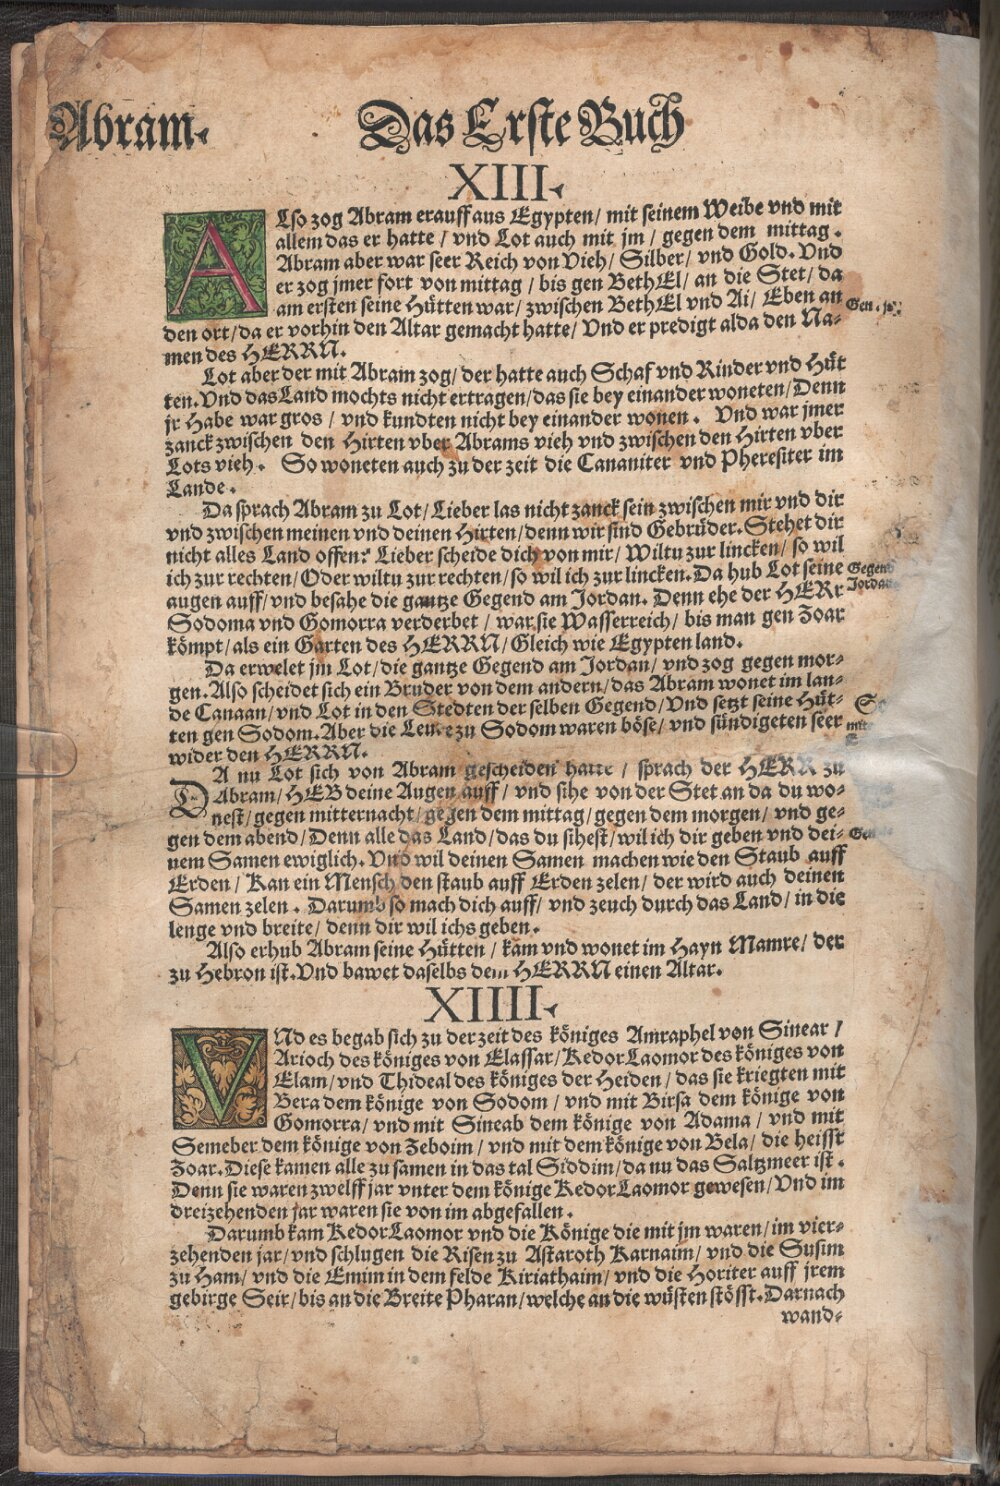 Abram.
Das Erste Buch
XIII.
ALso zog Abram erauff aus Egypten/ mit seinem Weibe vnd mit
allem das er hatte / vnd Lot auch mit jm / gegen dem mittag.
Abram aber war seer Reich von Vieh/ Silber/ vnd Gold. Vnd
er zog jmer fort von mittag / bis gen BethEl/ an die Stet/ da
am ersten seine Hütten war/ zwischen BethEl vnd Ai/ Eben an
Gen.
den ort/da er vorhin den Altar gemacht hatte/ Vnd er predigt alda den Na-
men des HERRN.
Lot aber der mit Abram zog/ der hatte auch Schaf vnd Rinder vnd Hüt
ten. Vnd das Land mochts nicht ertragen/ das sie bey einander woneten/ Denn
jr Habe war gros / vnd kundten nicht bey einander wonen. Vnd war jmer
zanck zwischen den Hirten vber Abrams vieh vnd zwischen den Hirten vber
Lots vieh. So woneten auch zu der zeit die Cananiter vnd Pheresiter im
Lande.
Da sprach Abram zu Lot/ Lieber las nicht zanck sein zwischen mir vnd dir
vnd zwischen meinen vnd deinen Hirten/ denn wir sind Gebrüder. Stehet dir
nicht alles Land offen? Lieber scheide dich von mir/ Wiltu zur lincken/ so wil
ich zur rechten/ Oder wiltu zur rechten/ so wil ich zur lincken. Da hub Lot seine
Gegend
augen auff/ vnd besahe die gantze Gegend am Jordan. Denn ehe der HERr
Jordan
Sodoma vnd Gomorra verderbet / war sie Wasserreich/ bis man gen Zoar
kömpt/ als ein Garten des HERRN/ Gleich wie Egypten land.
Da erwelet jm Lot/ die gantze Gegend am Jordan/ vnd zog gegen mor-
gen. Also scheidet sich ein Bruder von dem andern/ das Abram wonet im lan-
de Canaan/ vnd Lot in den Stedten der selben Gegend/ Vnd setzt seine Hüt-
ten gen Sodom. Aber die Leute zu Sodom waren böse/ vnd sündigeten seer
wider den HERRN.
DA nu Lot sich von Abram gescheiden hatte / sprach der HERR zu
Abram/ HEB deine Augen auff / vnd sihe von der Stet an da du wo-
nest/ gegen mitternacht/ gegen dem mittag/ gegen dem morgen/ vnd ge-
gen dem abend/ Denn alle das Land/ das du sihest/ wil ich dir geben vnd dei-
nem Samen ewiglich. Vnd wil deinen Samen machen wie den Staub auff
Erden / Kan ein Mensch den staub auff Erden zelen/ der wird auch deinen
Samen zelen. Darumb so mach dich auff/ vnd zeuch durch das Land/ in die
lenge vnd breite/ denn dir wil ichs geben.
Also erhub Abram seine Hütten / kam vnd wonet im Hayn Mamre/ der
zu Hebron ist. Vnd bawet daselbs dem HERRN einen Altar.
XIIII.
VNd es begab sich zu der zeit des königes Amraphel von Sinear /
Arioch des königes von Elassar/ KedorLaomor des königes von
Elam/ vnd Thideal des königes der Heiden/ das sie kriegten mit
Bera dem könige von Sodom / vnd mit Birsa dem könige von
Gomorra/ vnd mit Sineab dem könige von Adama / vnd mit
Semeber dem könige von Zeboim/ vnd mit dem könige von Bela/ die heisst
Zoar. Diese kamen alle zu samen in das tal Siddim/ da nu das Saltzmeer ist.
Denn sie waren zwelff jar vnter dem könige KedorLaomor gewesen/ Vnd im
dreizehenden jar waren sie von im abgefallen.
Darumb kam KedorLaomor vnd die Könige die mit jm waren/ im vier-
zehenden jar/ vnd schlugen die Risen zu Astaroth Karnaim/ vnd die Susim
zu Ham/ vnd die Emim in dem felde Kiriathaim/ vnd die Horiter auff jrem
gebirge Seir/ bis an die Breite Pharan/ welche an die wüsten stösst. Darnach
wand-